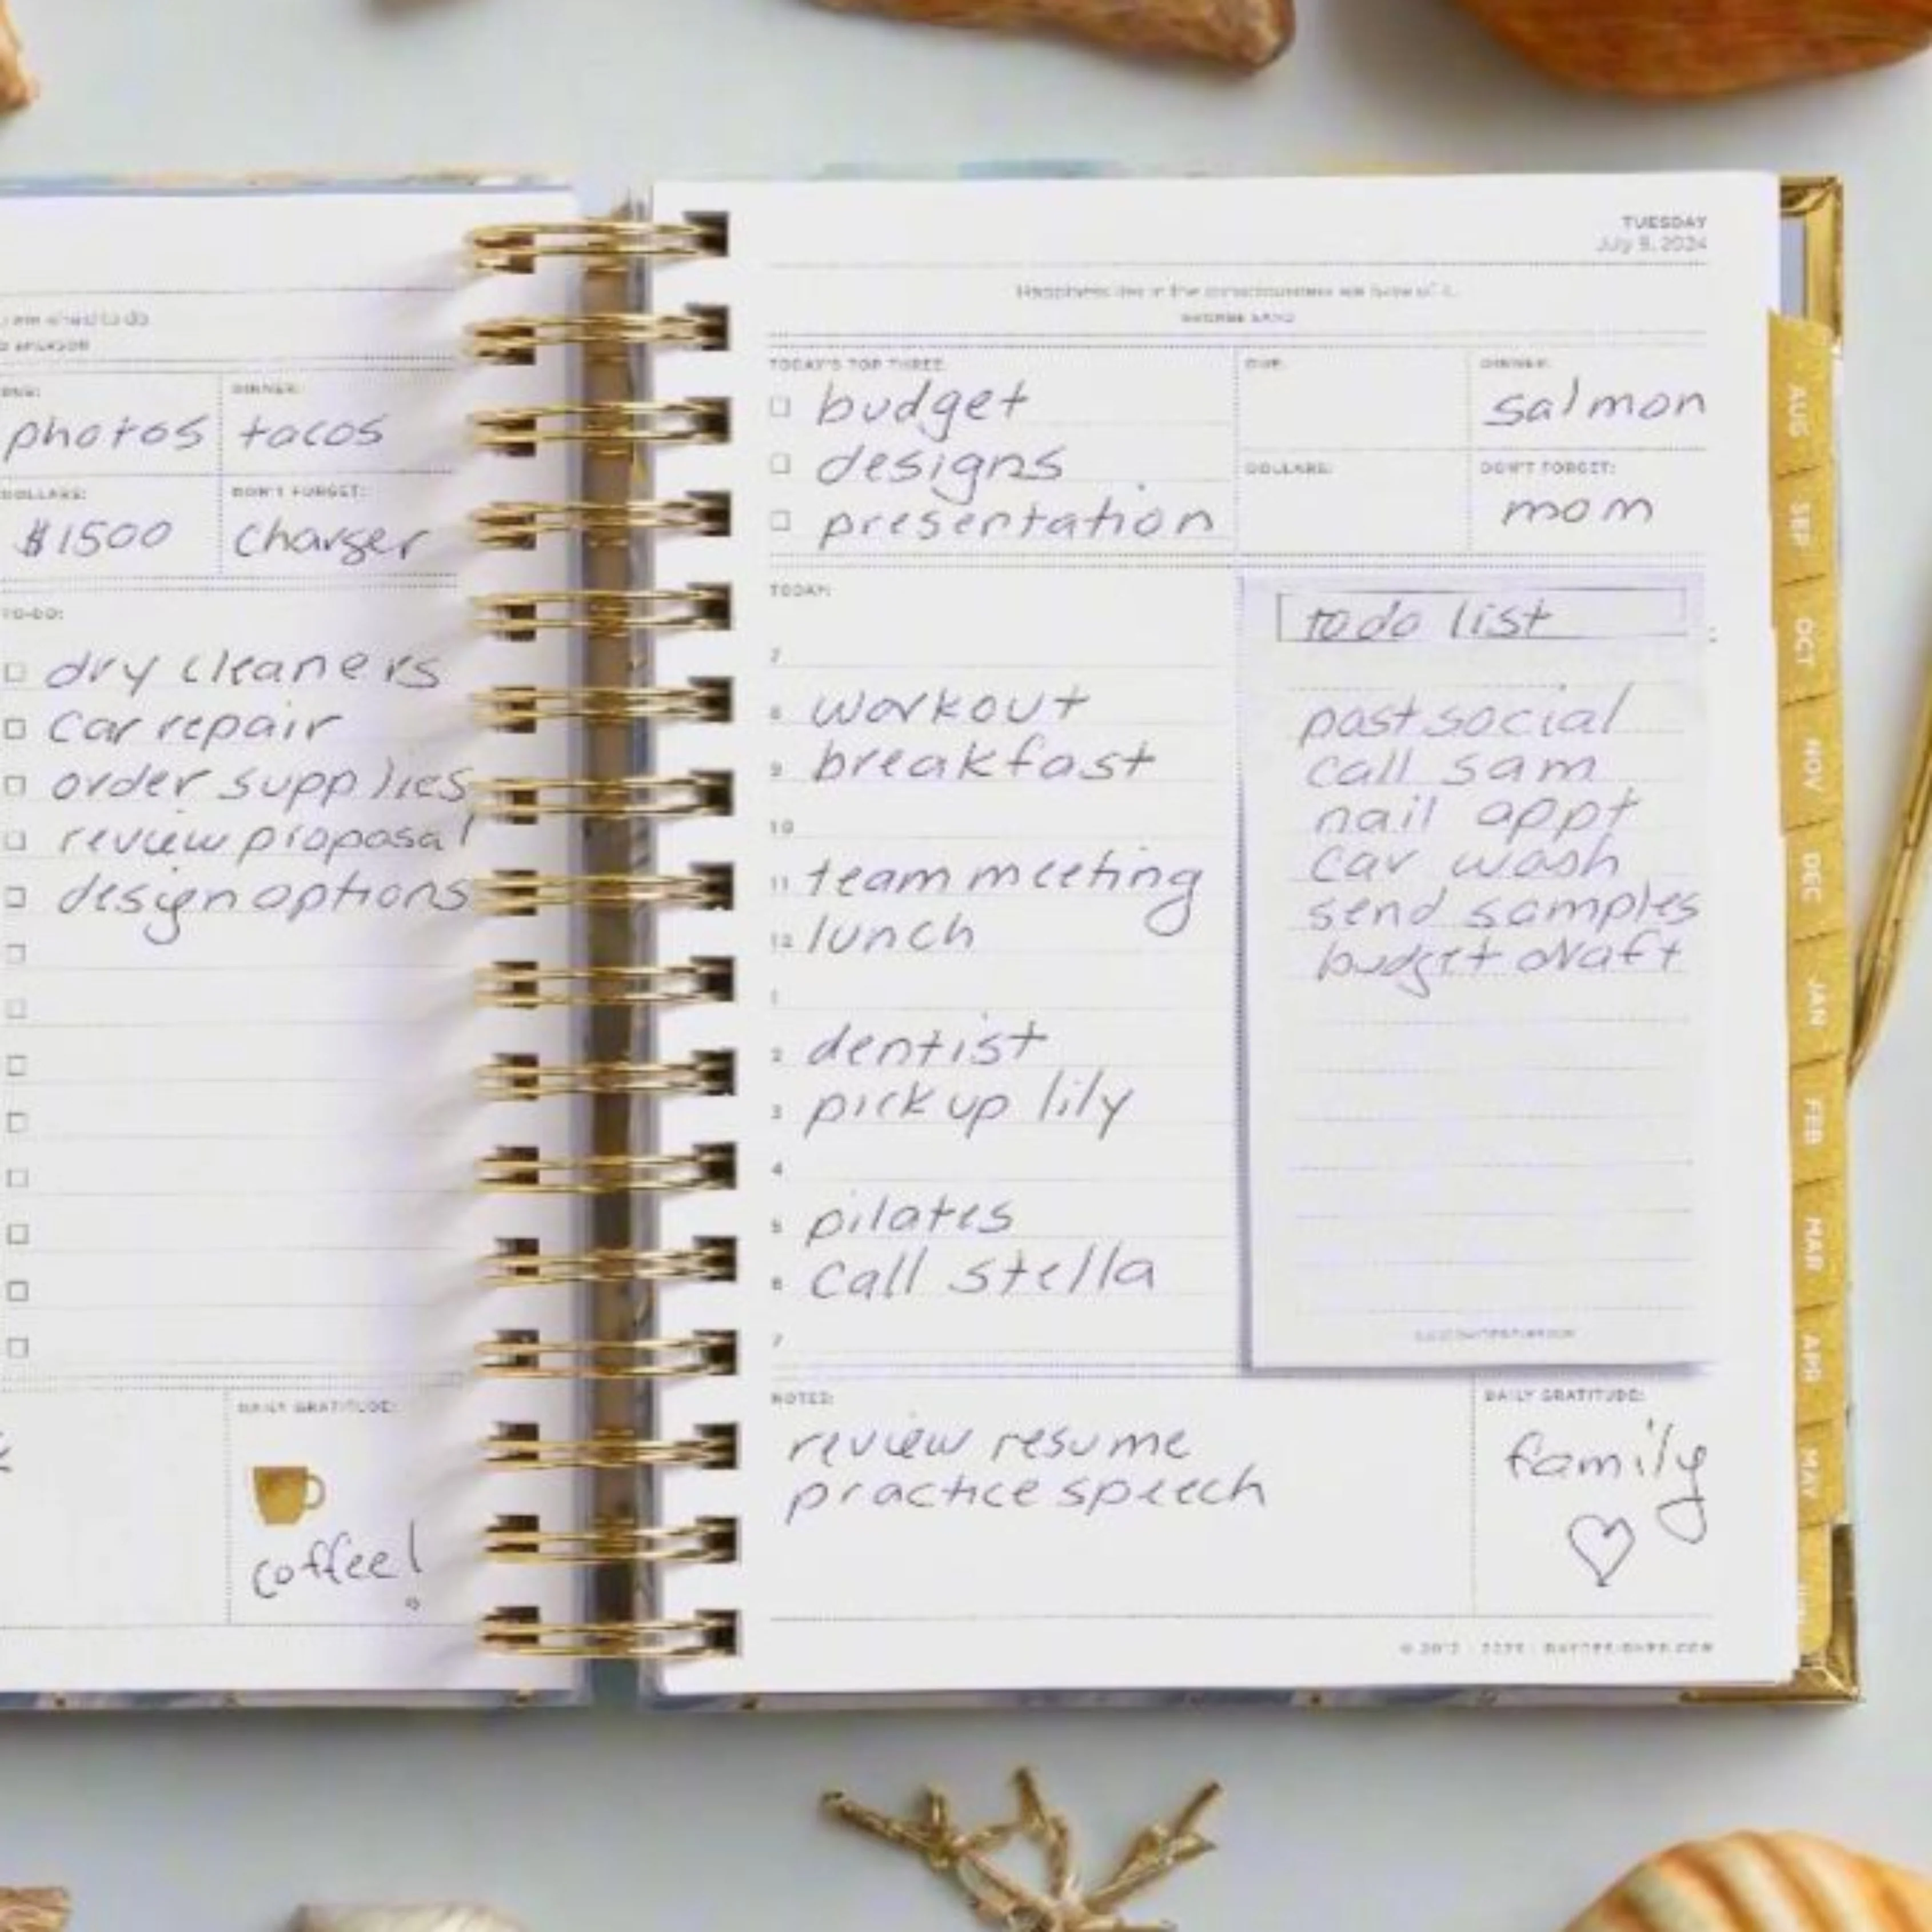 are afraid to do
DUE:
photos
DINNER:
tacos
DOLLARS:
$1500
DON'T FORGET:
charger
TO-DO:
dry cleaners
car repair
order supplies
review proposal
design options
DAILY GRATITUDE:
coffee!
TUESDAY
July 9, 2024
Happiness lies in the consciousness we have of it.
GEORGE SAND
TODAY'S TOP THREE:
budget
designs
presentation
DUE:
DINNER:
salmon
DOLLARS:
DON'T FORGET:
mom
TODAY:
7
8 workout
9 breakfast
10
11 team meeting
12 lunch
1
2 dentist
3 pick up lily
4
5 pilates
6 call stella
7
todo list
post social
call sam
nail appt
car wash
send samples
budget draft
NOTES:
review resume
practice speech
DAILY GRATITUDE:
family
DAYDESIGNER.COM
AUG
SEP
OCT
NOV
DEC
JAN
FEB
MAR
APR
MAY